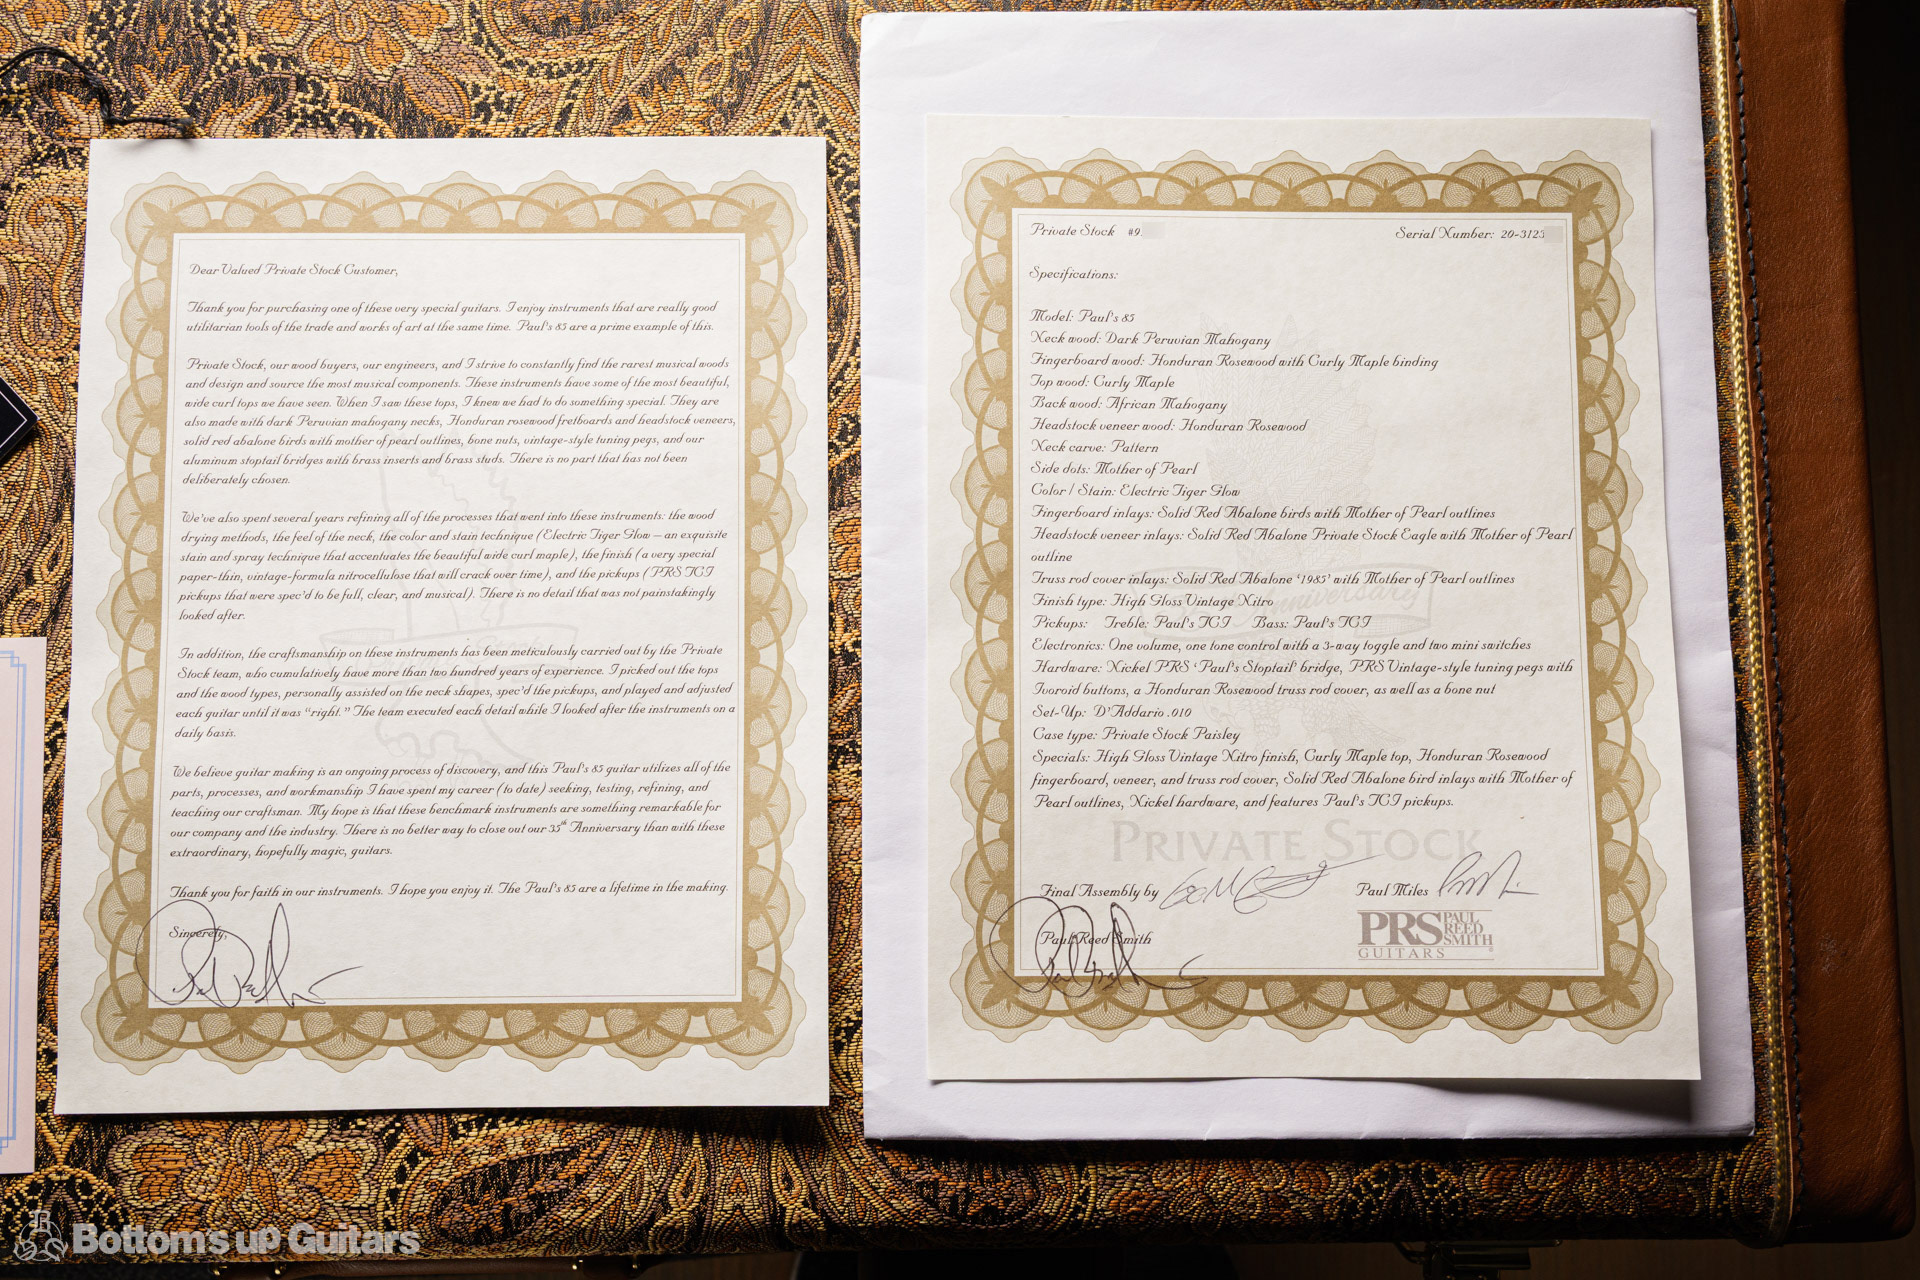 Dear Valued Private Stock Customer,
Thank you for purchasing one of these very special guitars. I enjoy instruments that are really good
utilitarian tools of the trade and works of art at the same time. Paul's 85 are a prime example of this.
Private Stock, our wood buyers, our engineers, and I strive to constantly find the rarest musical woods
and design and source the most musical components. These instruments have some of the most beautiful,
wide curl tops we have seen. When I saw these tops, I knew we had to do something special. They are
also made with dark Peruvian mahogany necks, Honduran rosewood fretboards and headstock veneers,
solid red abalone birds with mother of pearl outlines, bone nuts, vintage-style tuning pegs, and our
aluminum stoptail bridges with brass inserts and brass studs. There is no part that has not been
deliberately chosen.
We've also spent several years refining all of the processes that went into these instruments: the wood
drying methods, the feel of the neck, the color and stain technique (Electric Tiger Glow – an exquisite
stain and spray technique that accentuates the beautiful wide curl maple), the finish (a very special
paper-thin, vintage-formula nitrocellulose that will crack over time), and the pickups (PRS TCI
pickups that were spec'd to be full, clear, and musical). There is no detail that was not painstakingly
looked after.
In addition, the craftsmanship on these instruments has been meticulously carried out by the Private
Stock team, who cumulatively have more than two hundred years of experience. I picked out the tops
and the wood types, personally assisted on the neck shapes, spec'd the pickups, and played and adjusted
each guitar until it was "right." The team executed each detail while I looked after the instruments on a
daily basis.
We believe guitar making is an ongoing process of discovery, and this Paul's 85 guitar utilizes all of the
parts, processes, and workmanship I have spent my career (to date) seeking, testing, refining, and
teaching our craftsman. My hope is that these benchmark instruments are something remarkable for
our company and the industry. There is no better way to close out our 35th Anniversary than with these
extraordinary, hopefully magic, guitars.
Thank you for faith in our instruments. I hope you enjoy it. The Paul's 85 are a lifetime in the making.
Sincerely,
Private Stock #9
Serial Number: 20-3123
Specifications:
Model: Paul's 85
Neck wood: Dark Peruvian Mahogany
Fingerboard wood: Honduran Rosewood with Curly Maple binding
Top wood: Curly Maple
Back wood: African Mahogany
Headstock veneer wood: Honduran Rosewood
Neck carve: Pattern
Side dots: Mother of Pearl
Color / Stain: Electric Tiger Glow
Fingerboard inlays: Solid Red Abalone birds with Mother of Pearl outlines
Headstock veneer inlays: Solid Red Abalone Private Stock Eagle with Mother of Pearl
outline
Truss rod cover inlays: Solid Red Abalone '1985' with Mother of Pearl outlines
Finish type: High Gloss Vintage Nitro
Pickups: Treble: Paul's TCI Bass: Paul's TCI
Electronics: One volume, one tone control with a 3-way toggle and two mini switches
Hardware: Nickel PRS 'Paul's Stoptail' bridge, PRS Vintage-style tuning pegs with
Ivoroid buttons, a Honduran Rosewood truss rod cover, as well as a bone nut
Set-Up: D'Addario .010
Case type: Private Stock Paisley
Specials: High Gloss Vintage Nitro finish, Curly Maple top, Honduran Rosewood
fingerboard, veneer, and truss rod cover, Solid Red Abalone bird inlays with Mother of
Pearl outlines, Nickel hardware, and features Paul's TCI pickups.
Anniversary
PRIVATE STOCK
Final Assembly by
Paul Miles
Paul Reed Smith
PRS PAUL REED SMITH
GUITARS
Bottom's up Guitars